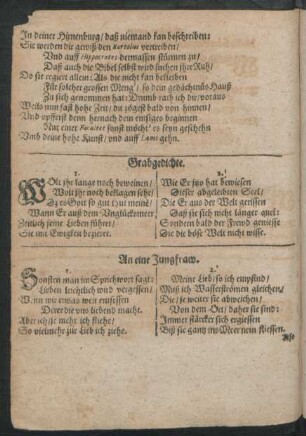 In deiner Hirnenburg/ daß niemand kan beschreiben:
Sie werden die gewiß den Bartolus vertreiben/
Vnd auff Hippocrates dermassen stürmen zu/
Daß auch die Bibel selbst wird suchen ihre Ruh/
Do sie regiert allein: Als die nicht kan bekleiben
Für solcher grossen Meng'/ so dein gedächtnüs-Hauß
Zu sich genommen hat: Drumb rath ich dir/ voraus
Weils nun fast hohe Zeit/ du zögest bald von hinnen/
Und opfferst denn hernach dein einsiges beginnen
Nur einer Facultet sonst möcht' es seyn geschehn
Umb deine hohe Kunst/ und auff Lami gehn.
Grabgedichte.
1.
Wolt ihr lange noch beweinen/
Wolt ihr noch beklagen sehr/
Die es Gott so gut thut meine/
Wann Er auß dem Unglücksmeer
Zeitlich seine Lieben führet/
Sie mit Ewigkeit bezieret.
2.
Wie Er itzo hat bewiesen
Dieser abgelebten Seel/
Die Er aus der Welt gerissen
Daß sie sich nicht länger quel:
Sondern bald der Frewd gewiesse
Die die böse Welt nicht wisse.
An eine Jungfraw.
1.
Sonsten man im Sprichwort sagt:
Lieben leichtlich wird vergessen/
Wenn wir etwas weit entsessen
Derer die uns liebend macht.
Aber ich je mehr ich fliehe/
So vielmehr zur Lieb ich ziehe.
2.
Meine Lieb/ so ich empfind/
Muß ich Wasserströmen gleichen/
Die/ je weiter sie abweichen/
Von dem Ort/ daher sie sind:
Immer stärcker sich ergiessen
Biß sie gantz ins Meer nein fliessen.